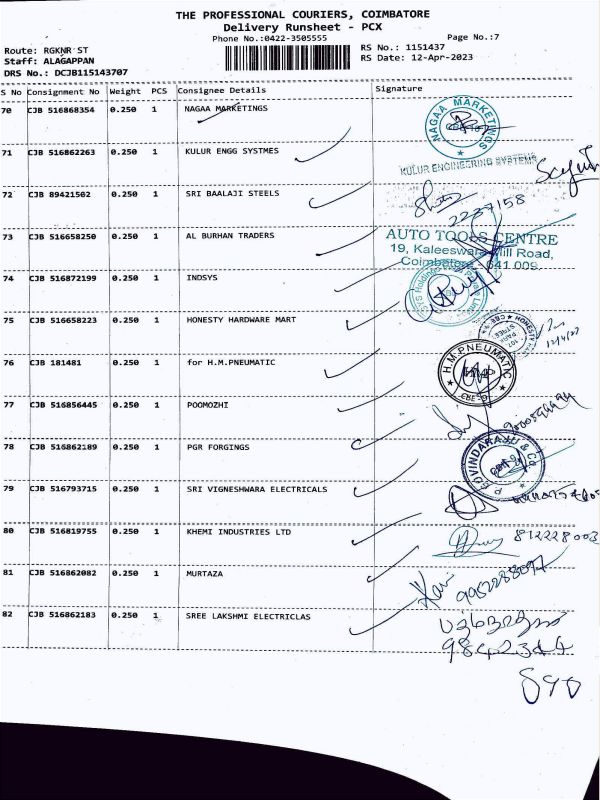 THE PROFESSIONAL COURIERS, COIMBATORE
Delivery Runsheet - PCX
Phone No.:0422-3505555
Page No.:7
Route: RGKNR ST
RS No.: 1151437
Staff: ALAGAPPAN
RS Date: 12-Apr-2023
DRS No.: DCJB115143707
S No Consignment No Weight PCS Consignee Details Signature
70 CJB 516868354 0.250 1 NAGAA MARKETINGS
NAGAA MARKETINGS
71 CJB 516862263 0.250 1 KULUR ENGG SYSTMES
KULUR ENGINEERING SYSTEMS
72 CJB 89421502 0.250 1 SRI BAALAJI STEELS
2237158
73 CJB 516658250 0.250 1 AL BURHAN TRADERS
AUTO TOOLS CENTRE
19, Kaleeswara Mill Road,
Coimbatore - 641 009
74 CJB 516872199 0.250 1 INDSYS
75 CJB 516658223 0.250 1 HONESTY HARDWARE MART
12/4/23
76 CJB 181481 0.250 1 for H.M.PNEUMATIC
H.M.PNEUMATIC
77 CJB 516856445 0.250 1 POOMOZHI
78 CJB 516862189 0.250 1 PGR FORGINGS
P.GOVINDARAJU & Co.
79 CJB 516793715 0.250 1 SRI VIGNESHWARA ELECTRICALS
80 CJB 516819755 0.250 1 KHEMI INDUSTRIES LTD
812228003
81 CJB 516862082 0.250 1 MURTAZA
82 CJB 516862183 0.250 1 SREE LAKSHMI ELECTRICLAS